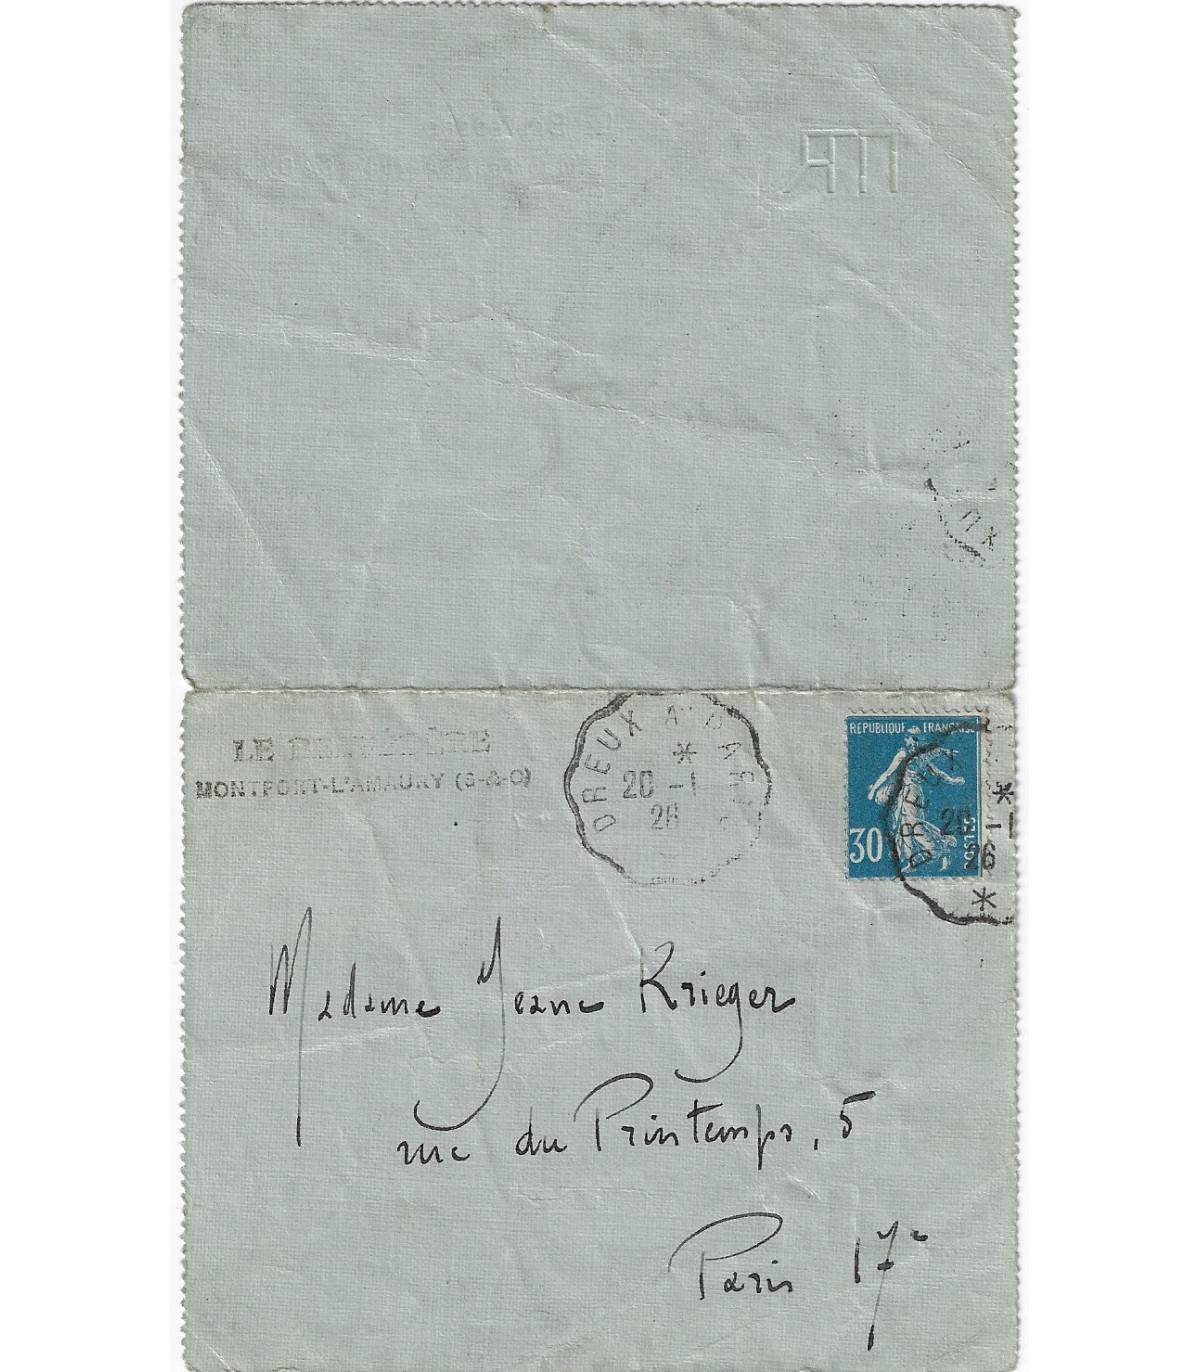 LE BELVÉDÈRE
MONTFORT-L'AMAURY (S-&-O)
DREUX A PARIS
*
20 -1
26
REPUBLIQUE FRANÇAISE
30
POSTES
DREUX
*
20 -1
26
*
Madame Jeane Krieger
rue du Printemps, 5
Paris 17e